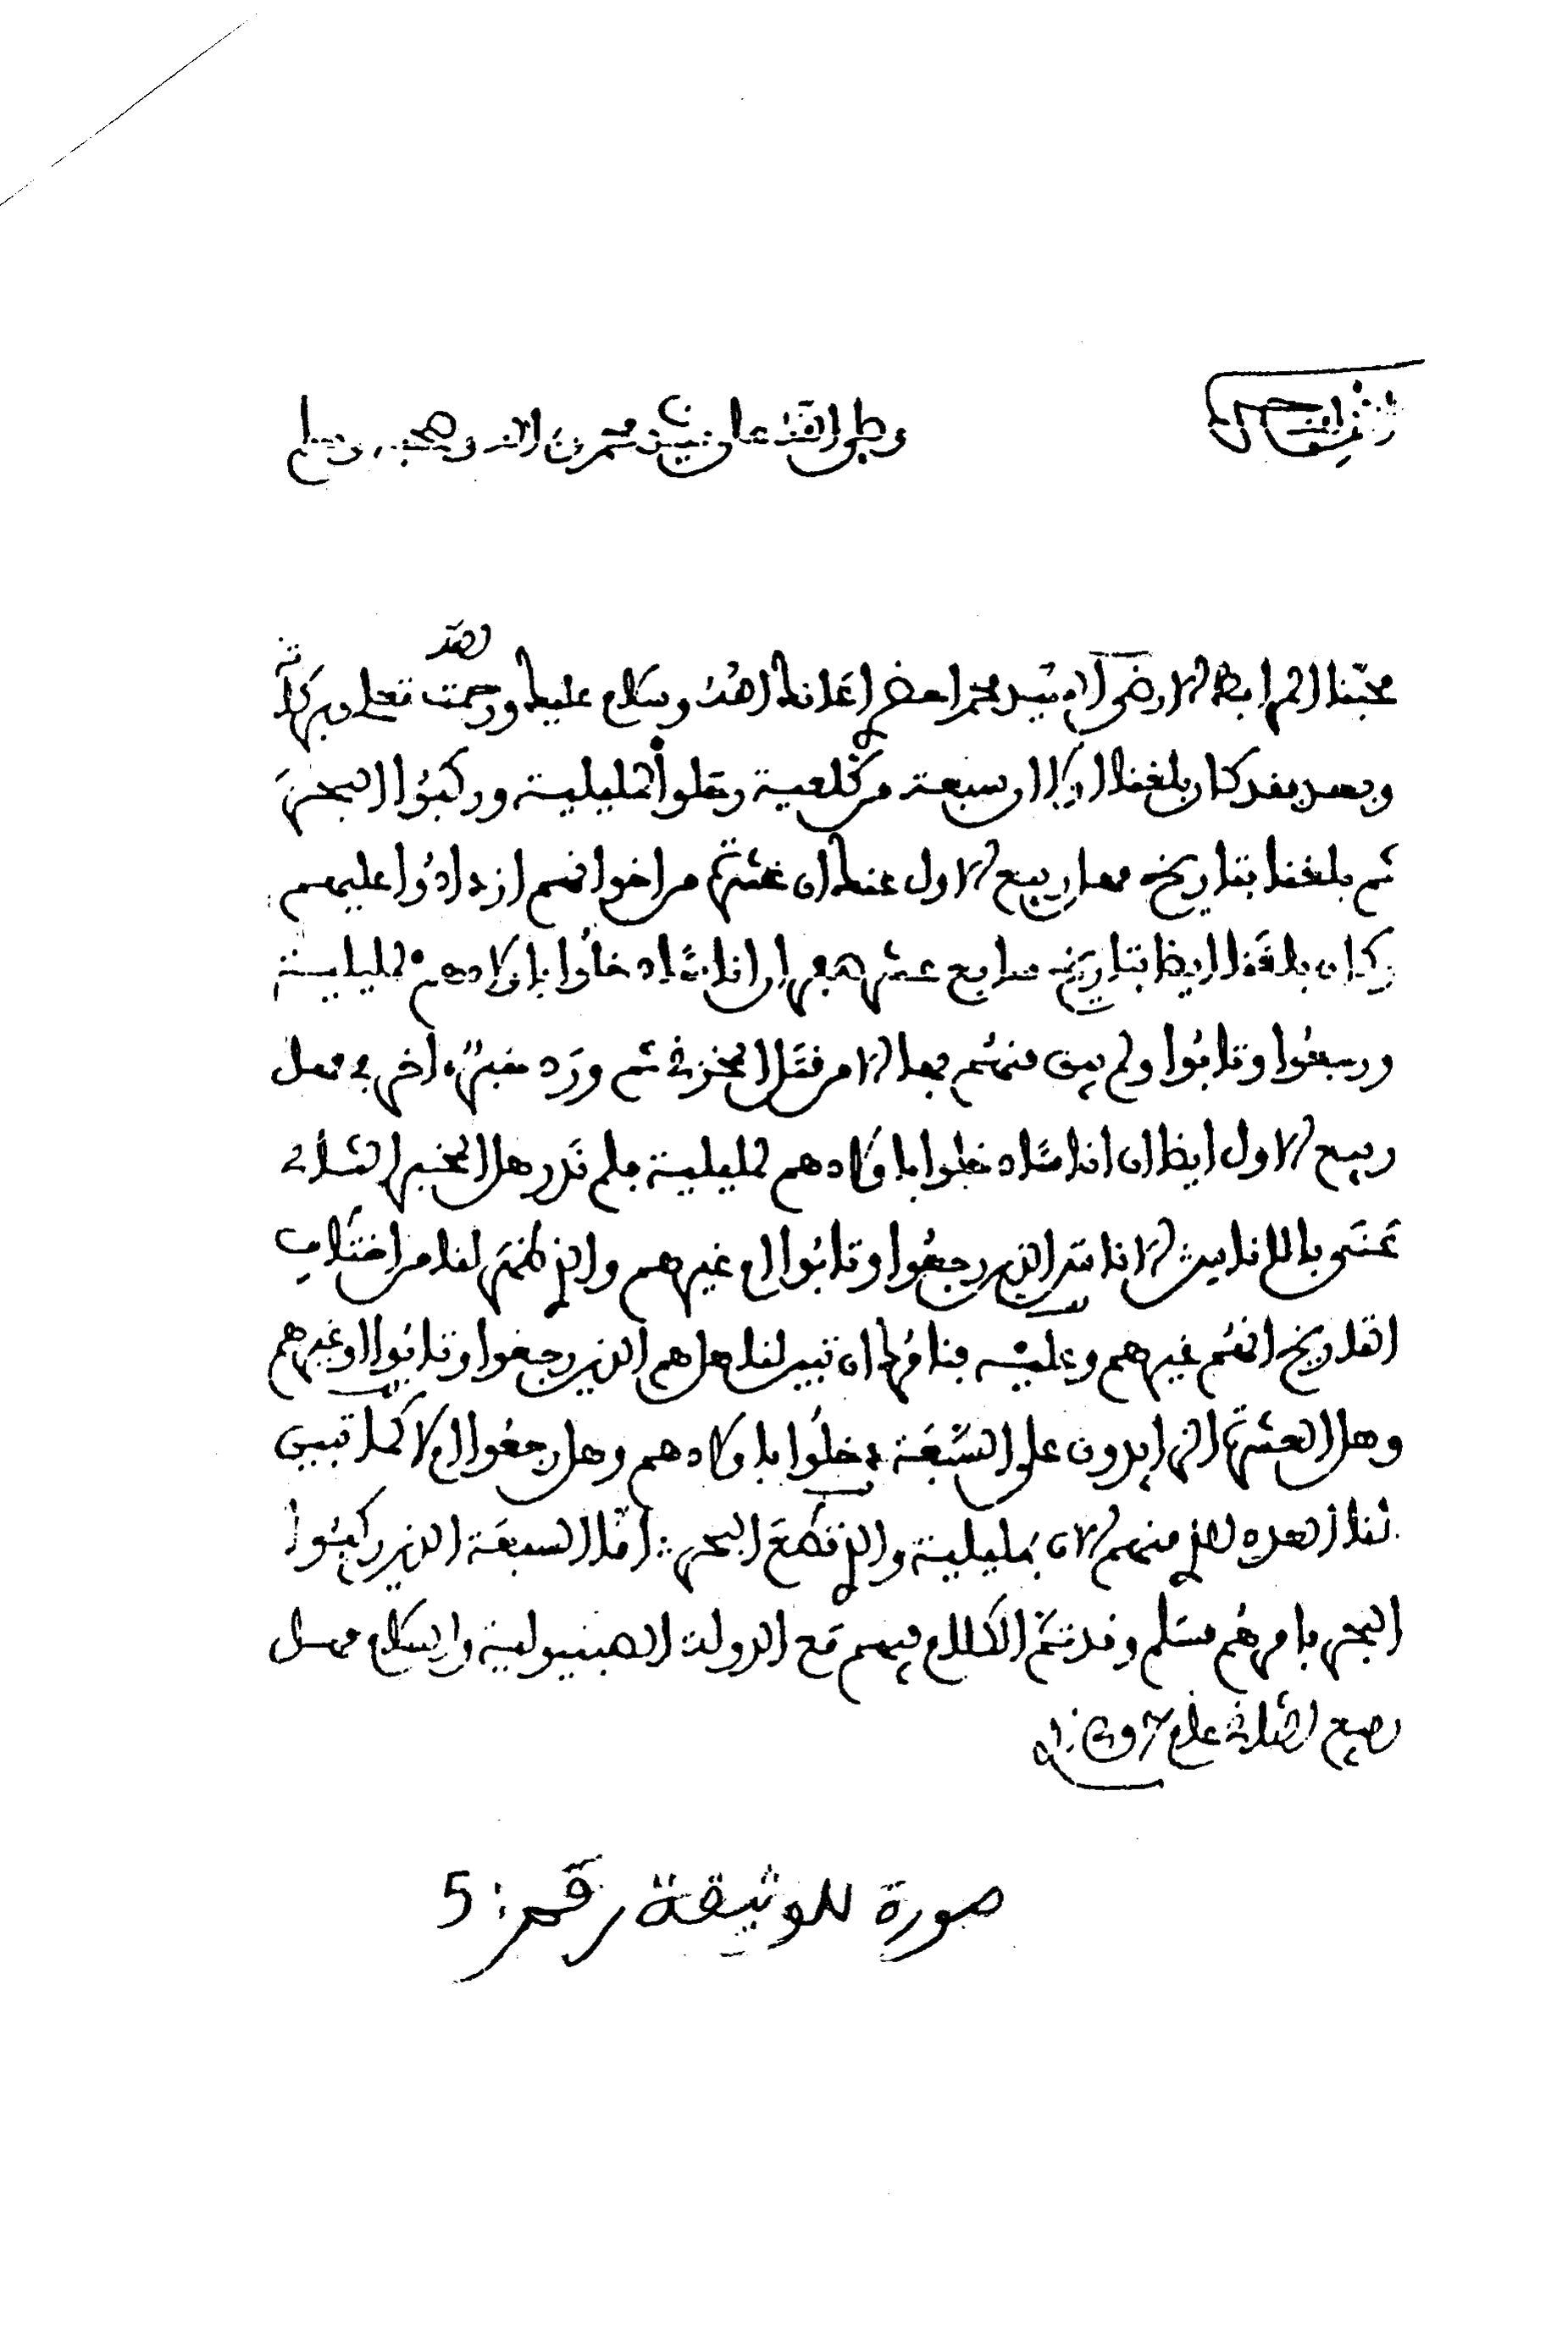 الحمد لله
وصلى الله على سيدنا محمد وآله وصحبه وسلم
محبنا المرابط الارضى السيد محمد احضري اعانك الله وسلام عليك ورحمت الله تعلى وبركاته
وبعد فقد كان بلغنا اولا ان سبعة من قلعية دخلوا لمليلية وركبوا البحر
ثم بلغنا بتاريخ مهل ربيع الاول عنك ان عشرة من اخوانهم ازدادوا عليهم
وكان بلغنا ايضا بتاريخ سابع عشر صفر ان اناسا دخلوا باولادهم لمليلية
ورجعوا وتابوا ولم يبق منهم بها الا من قتل المخزني ثم ورد خبر اخر في مهل
ربيع الاول ايضا ان اناسا دخلوا باولادهم لمليلية فلم ندر هل الخبر الثاني
عنى بالاناس الاناس الذين رجعوا وتابوا او غيرهم والذي ظهر لنا من اختلاف
التاريخ انهم غيرهم وعليه فنامرك ان تبين لنا هل هم الذين رجعوا وتابوا او غيرهم
وهل العشرة الزايدون على السبعة دخلوا باولادهم وهل رجعوا ام لا كما تبين
لنا العدد الذي منهم الان بمليلية والذي قطع البحر اما السبعة الذين ركبوا
البحر فامرهم مسلم وقد تم الكلام فيهم مع الدولة الصبنيولية والسلام مهل
ربيع الثاني عام
صورة للوثيقة رقم: 5